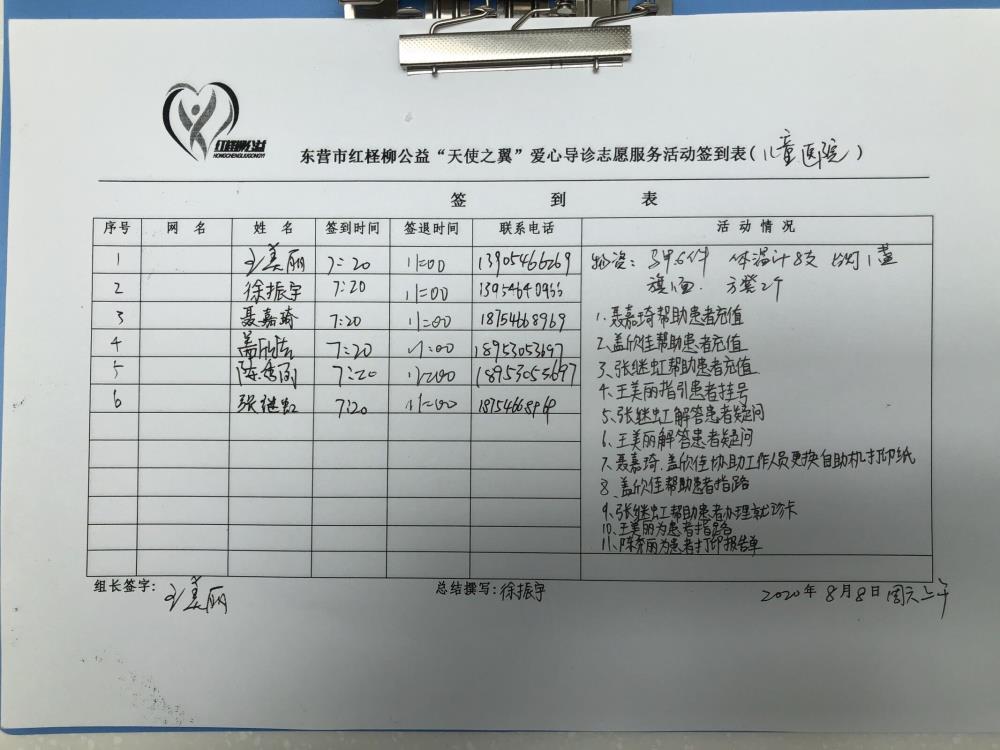 红柽柳公益
HONGCHENGLIUGONGYI
东营市红柽柳公益“天使之翼”爱心导诊志愿服务活动签到表(儿童医院)
签 到 表
序号 网 名 姓 名 签到时间 签退时间 联系电话 活 动 情 况
1 王美丽 7:20 11:00 13905466269
2 徐振宇 7:20 11:00
3 聂嘉琦 7:20 11:00 18754668969
4 盖欣佳 7:20 11:00 18953053697
5 陈秀丽 7:20 11:00 18953053697
6 张继虹 7:20 11:00 18754668969
物资:马甲6件 体温计8支 台灯1盏
旗1面. 方凳2个
1.聂嘉琦帮助患者充值
2.盖欣佳帮助患者充值
3、张继虹帮助患者充值
4、王美丽指引患者挂号
5、张继虹解答患者疑问
6、王美丽解答患者疑问
7、聂嘉琦.盖欣佳协助工作人员更换自助机打印纸
8、盖欣佳帮助患者指路
9、张继虹帮助患者办理就诊卡
10、王美丽为患者指路
11、陈秀丽为患者打印报告单
组长签字:王美丽 总结撰写:徐振宇 2020年8月8日周六上午